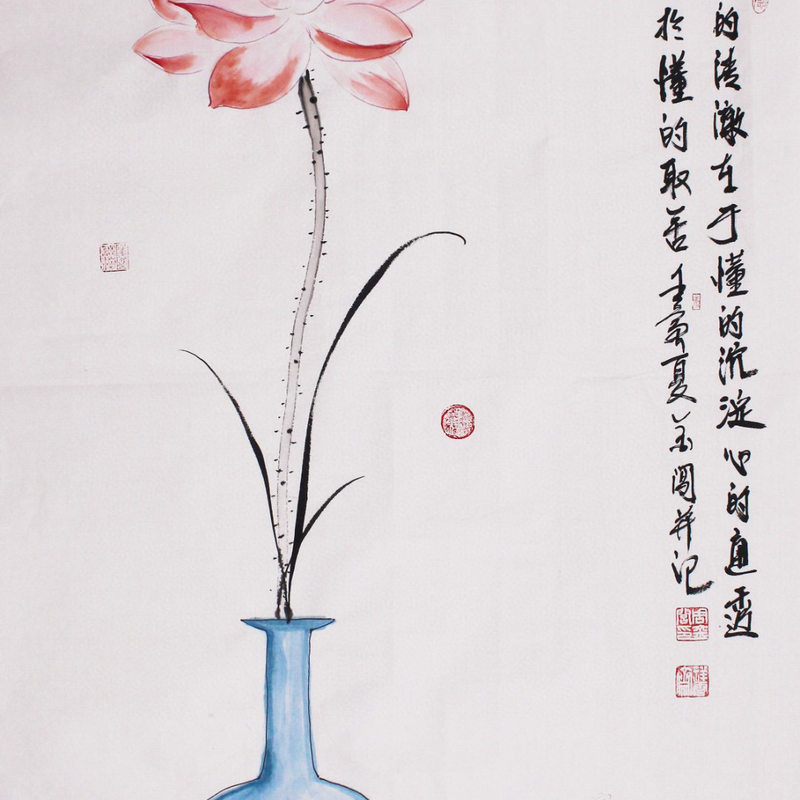 的清澈在于懂的沉淀心的通透
於懂的取舍壬寅夏并记